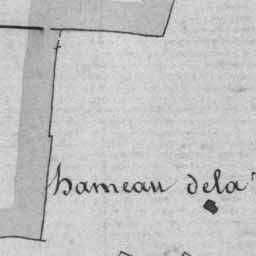 hameau dela